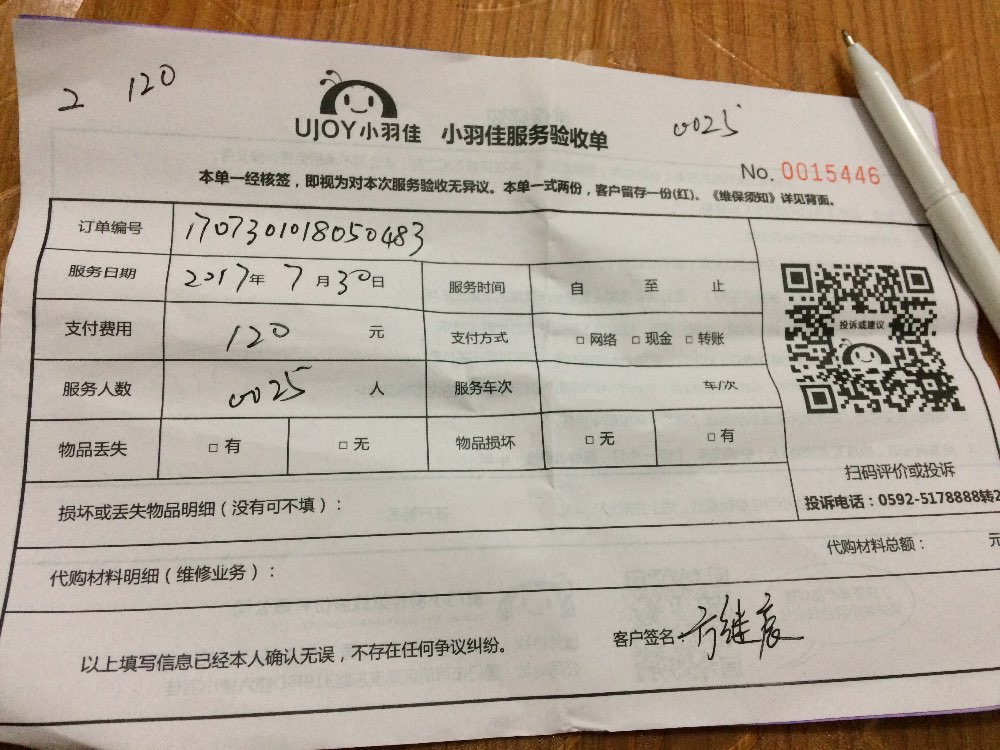 2 120
UJOY小羽佳 小羽佳服务验收单 0025
No. 0015446
本单一经核签，即视为对本次服务验收无异议。本单一式两份，客户留存一份(红)。《维保须知》详见背面。
订单编号 1707301018050483
服务日期 2017年 7月30日 服务时间 自 至 止
支付费用 120 元 支付方式 □ 网络 □ 现金 □ 转账
投诉或建议
服务人数 0025 人 服务车次 车/次
物品丢失 □ 有 □ 无 物品损坏 □ 无 □ 有
扫码评价或投诉
投诉电话：0592-5178888转2
损坏或丢失物品明细（没有可不填）：
代购材料明细（维修业务）： 代购材料总额： 元
以上填写信息已经本人确认无误，不存在任何争议纠纷。 客户签名：